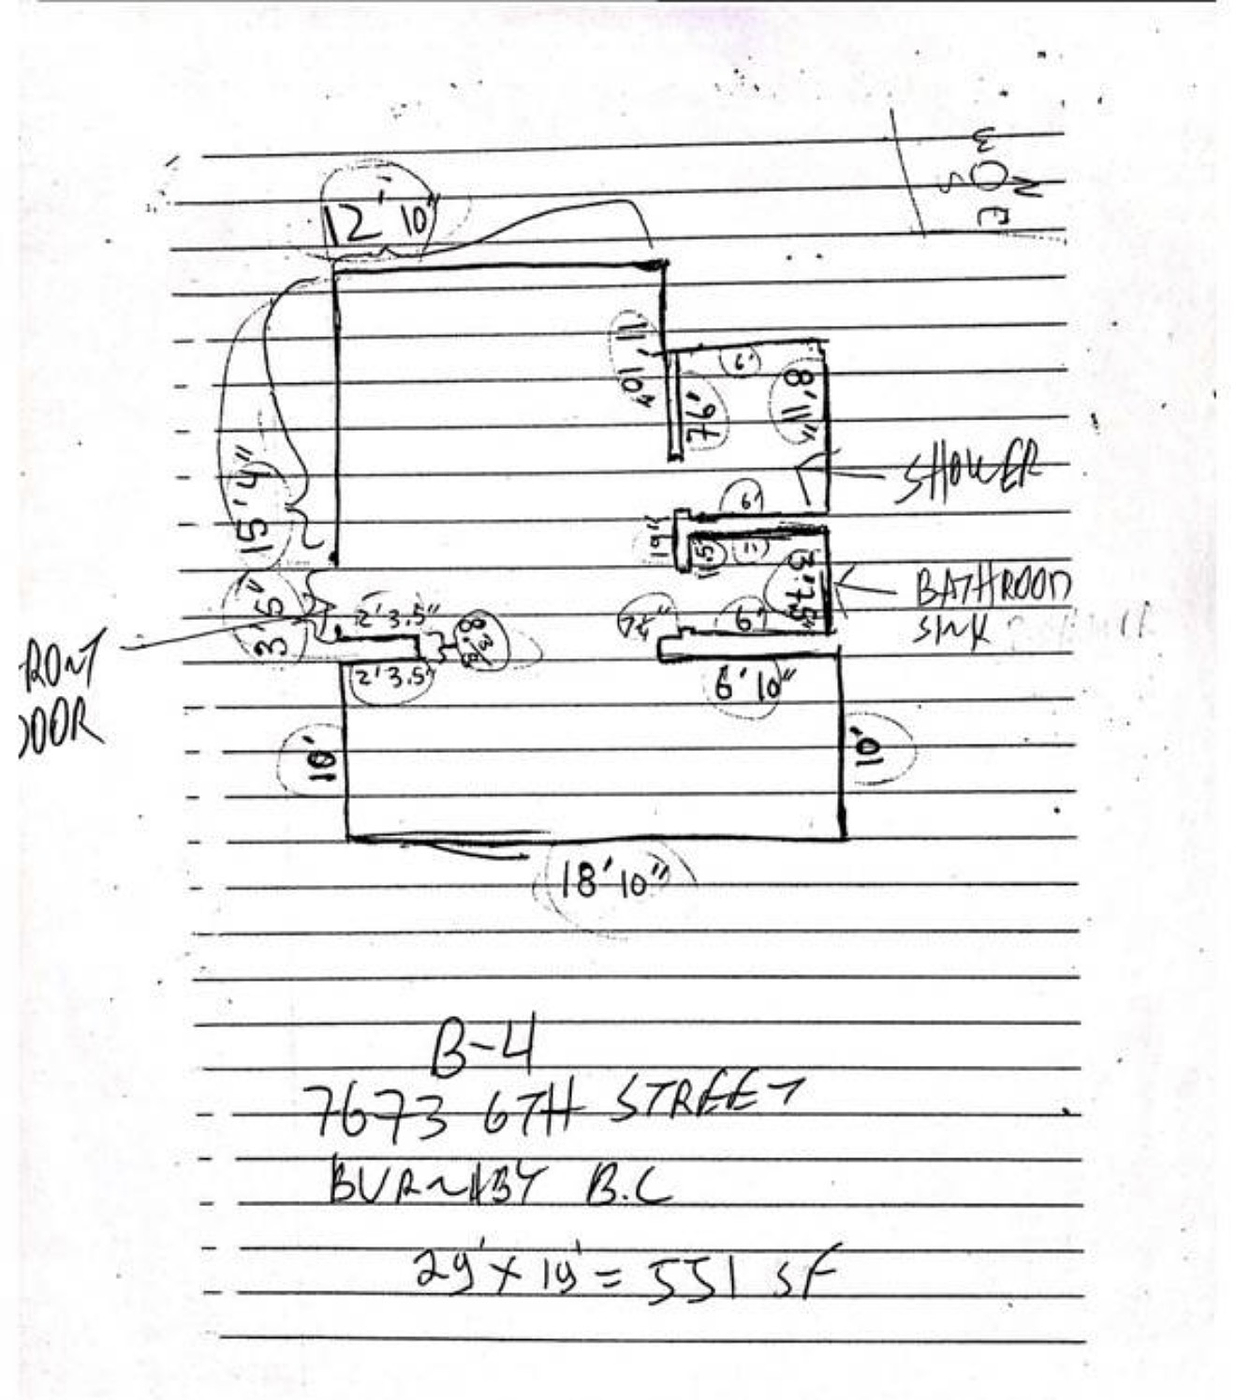 N
E
O
S
W
12' 10"
6'
8' 11"
SHOWER
15' 4"
6'
19"
11"
3' 7.5"
BATHROOM
SINK
3' 5"
2' 3.5"
6'
2' 3.5"
6' 10"
RONT
OOR
10'
10'
18' 10"
B-4
7673 6TH STREET
BURNABY B.C
29' x 19' = 551 SF